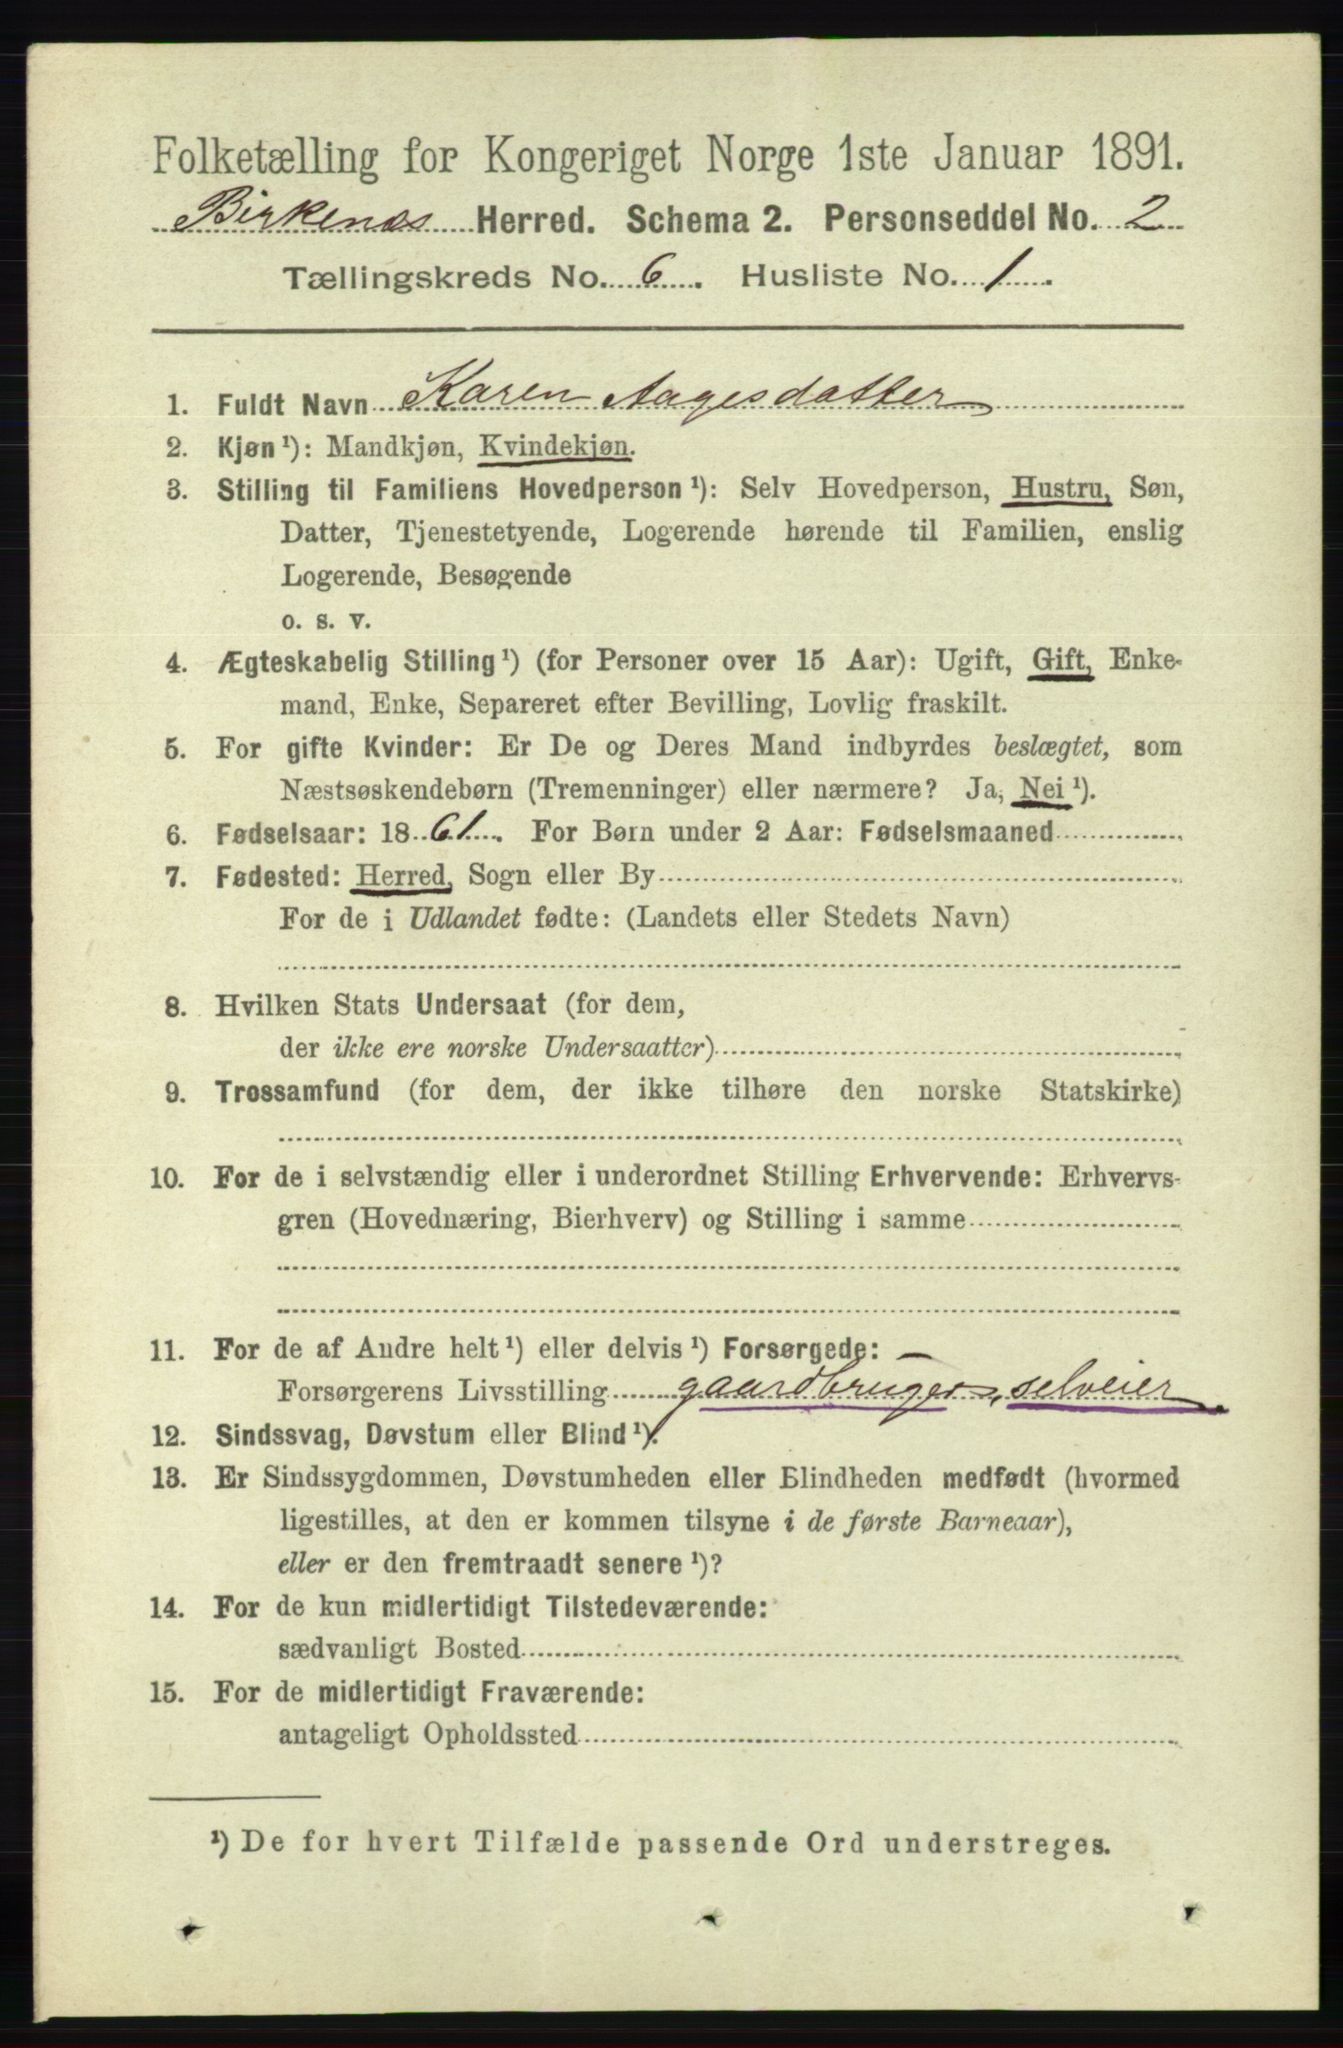 Folketælling for Kongeriget Norge 1ste Januar 1891.
Birkenæs Herred. Schema 2. Personseddel No. 2
Tællingskreds No. 6. Husliste No. 1.
1. Fuldt Navn Karen Aagesdatter
2. Kjøn¹): Mandkjøn, Kvindekjøn.
3. Stilling til Familiens Hovedperson¹): Selv Hovedperson, Hustru, Søn,
Datter, Tjenestetyende, Logerende hørende til Familien, enslig
Logerende, Besøgende
o. s. v.
4. Ægteskabelig Stilling¹) (for Personer over 15 Aar): Ugift, Gift, Enke-
mand, Enke, Separeret efter Bevilling, Lovlig fraskilt.
5. For gifte Kvinder: Er De og Deres Mand indbyrdes beslægtet, som
Næstsøskendebørn (Tremenninger) eller nærmere? Ja, Nei¹).
6. Fødselsaar: 1861. For Børn under 2 Aar: Fødselsmaaned
7. Fødested: Herred, Sogn eller By
For de i Udlandet fødte: (Landets eller Stedets Navn)
8. Hvilken Stats Undersaat (for dem,
der ikke ere norske Undersaatter)
9. Trossamfund (for dem, der ikke tilhøre den norske Statskirke)
10. For de i selvstændig eller i underordnet Stilling Erhvervende: Erhvervs-
gren (Hovednæring, Bierhverv) og Stilling i samme
11. For de af Andre helt¹) eller delvis¹) Forsørgede: —
Forsørgerens Livsstilling gaardbruger, selveier
12. Sindssvag, Døvstum eller Blind¹).
13. Er Sindssygdommen, Døvstumheden eller Blindheden medfødt (hvormed
ligestilles, at den er kommen tilsyne i de første Barneaar),
eller er den fremtraadt senere¹)?
14. For de kun midlertidigt Tilstedeværende:
sædvanligt Bosted
15. For de midlertidigt Fraværende:
antageligt Opholdssted
¹) De for hvert Tilfælde passende Ord understreges.